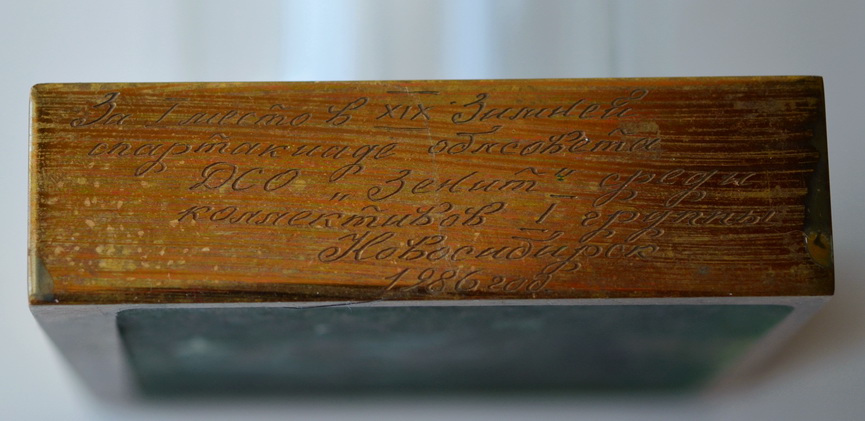 За I место в XIX Зимней
спартакиаде облсовета
ДСО „Зенит" среды
коллективов I группы
Новосибирск
1986 год